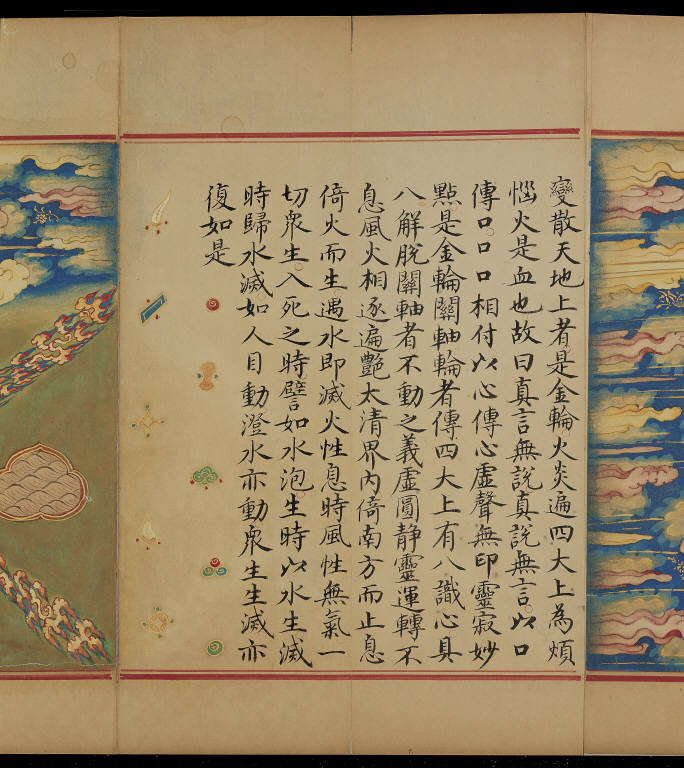 變散天地上者是金輪火炎遍四大上為煩
惱火是血也故曰真言無說真說無言以口
傳口口口相付以心傳心虛聲無印靈寂妙
點是金輪關軸輪者傳四大上有八識心具
八解脫關軸者不動之義虛圓静靈運轉不
息風火相逐遍艷太清界內倚南方而止息
倚火而生遇水即滅火性息時風性無氣一
切衆生入死之時譬如水泡生時以水生滅
時歸水滅如人目動澄水亦動衆生生滅亦
復如是